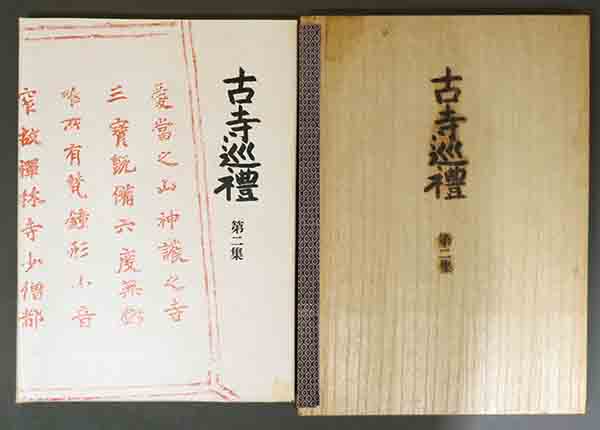 古寺巡禮
第二集
愛當之山神護之寺
三寶既備六度無虧
唯所有梵鐘形小音
窄故禪林寺少僧都
古寺巡禮
第二集